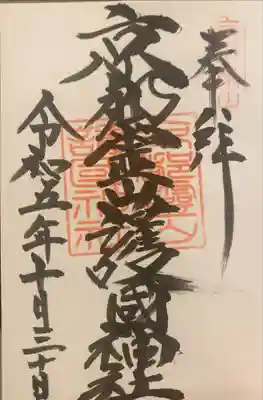 奉拝
京都霊山護國神社
令和五年十月三十日